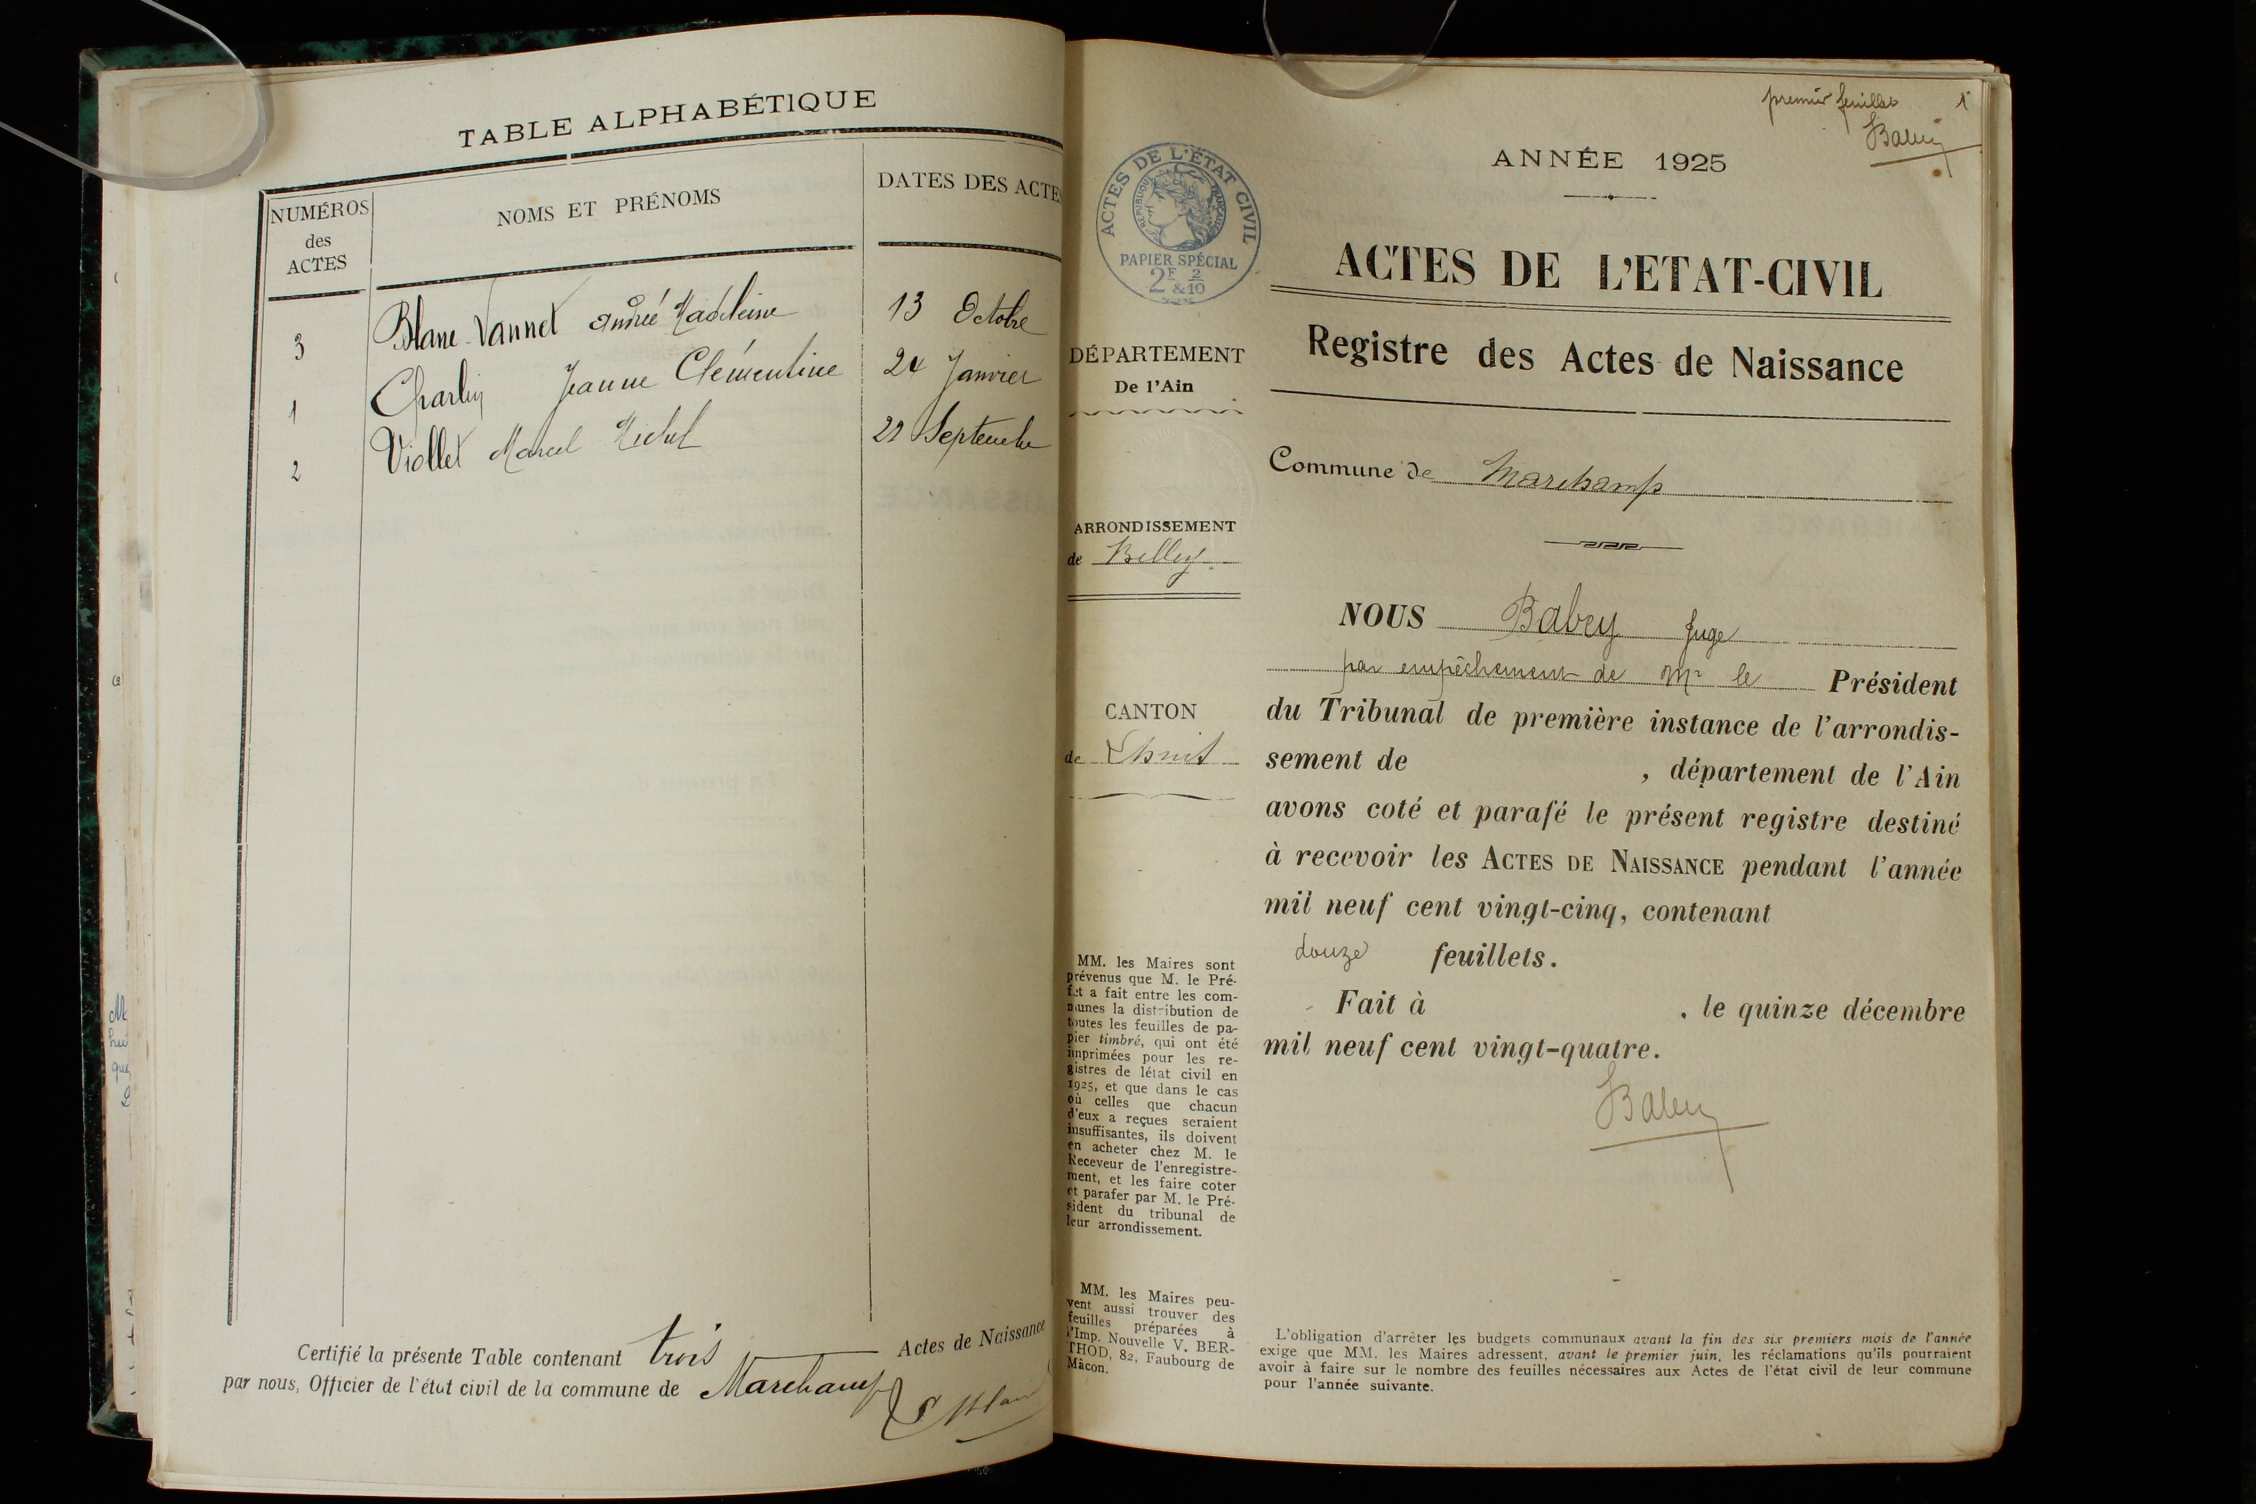 TABLE ALPHABÉTIQUE
NUMÉROS
des
ACTES
NOMS ET PRÉNOMS
DATES DES ACTES
3 Blanc-Vannet Andrée Madeleine 13 Octobre
1 Charlin Jeanne Clémentine 24 Janvier
2 Viollet Marcel Michel 22 Septembre
Certifié la présente Table contenant trois Actes de Naissance
par nous, Officier de l'état civil de la commune de Marchamp
premier feuillet 1
Babey
ANNÉE 1925
ACTES DE L'ÉTAT CIVIL
RÉPUBLIQUE FRANÇAISE
PAPIER SPÉCIAL
2F 2
&10
ACTES DE L'ETAT-CIVIL
Registre des Actes de Naissance
DÉPARTEMENT
De l'Ain
Commune de Marchamp
ARRONDISSEMENT
de Belley
CANTON
de Lhuis
NOUS Babey Juge
par empêchement de Mr le Président
du Tribunal de première instance de l'arrondis-
sement de , département de l'Ain
avons coté et parafé le présent registre destiné
à recevoir les ACTES DE NAISSANCE pendant l'année
mil neuf cent vingt-cinq, contenant
douze feuillets.
Fait à , le quinze décembre
mil neuf cent vingt-quatre.
Babey
MM. les Maires sont
prévenus que M. le Pré-
fet a fait entre les com-
munes la distribution de
toutes les feuilles de pa-
pier timbré, qui ont été
imprimées pour les re-
gistres de létat civil en
1925, et que dans le cas
où celles que chacun
d'eux a reçues seraient
insuffisantes, ils doivent
en acheter chez M. le
Receveur de l'enregistre-
ment, et les faire coter
et parafer par M. le Pré-
sident du tribunal de
leur arrondissement.
MM. les Maires peu-
vent aussi trouver des
feuilles préparées à
l'Imp. Nouvelle V. BER-
THOD, 82, Faubourg de
Mâcon.
L'obligation d'arrêter les budgets communaux avant la fin des six premiers mois de l'année
exige que MM. les Maires adressent, avant le premier juin, les réclamations qu'ils pourraient
avoir à faire sur le nombre des feuilles nécessaires aux Actes de l'état civil de leur commune
pour l'année suivante.